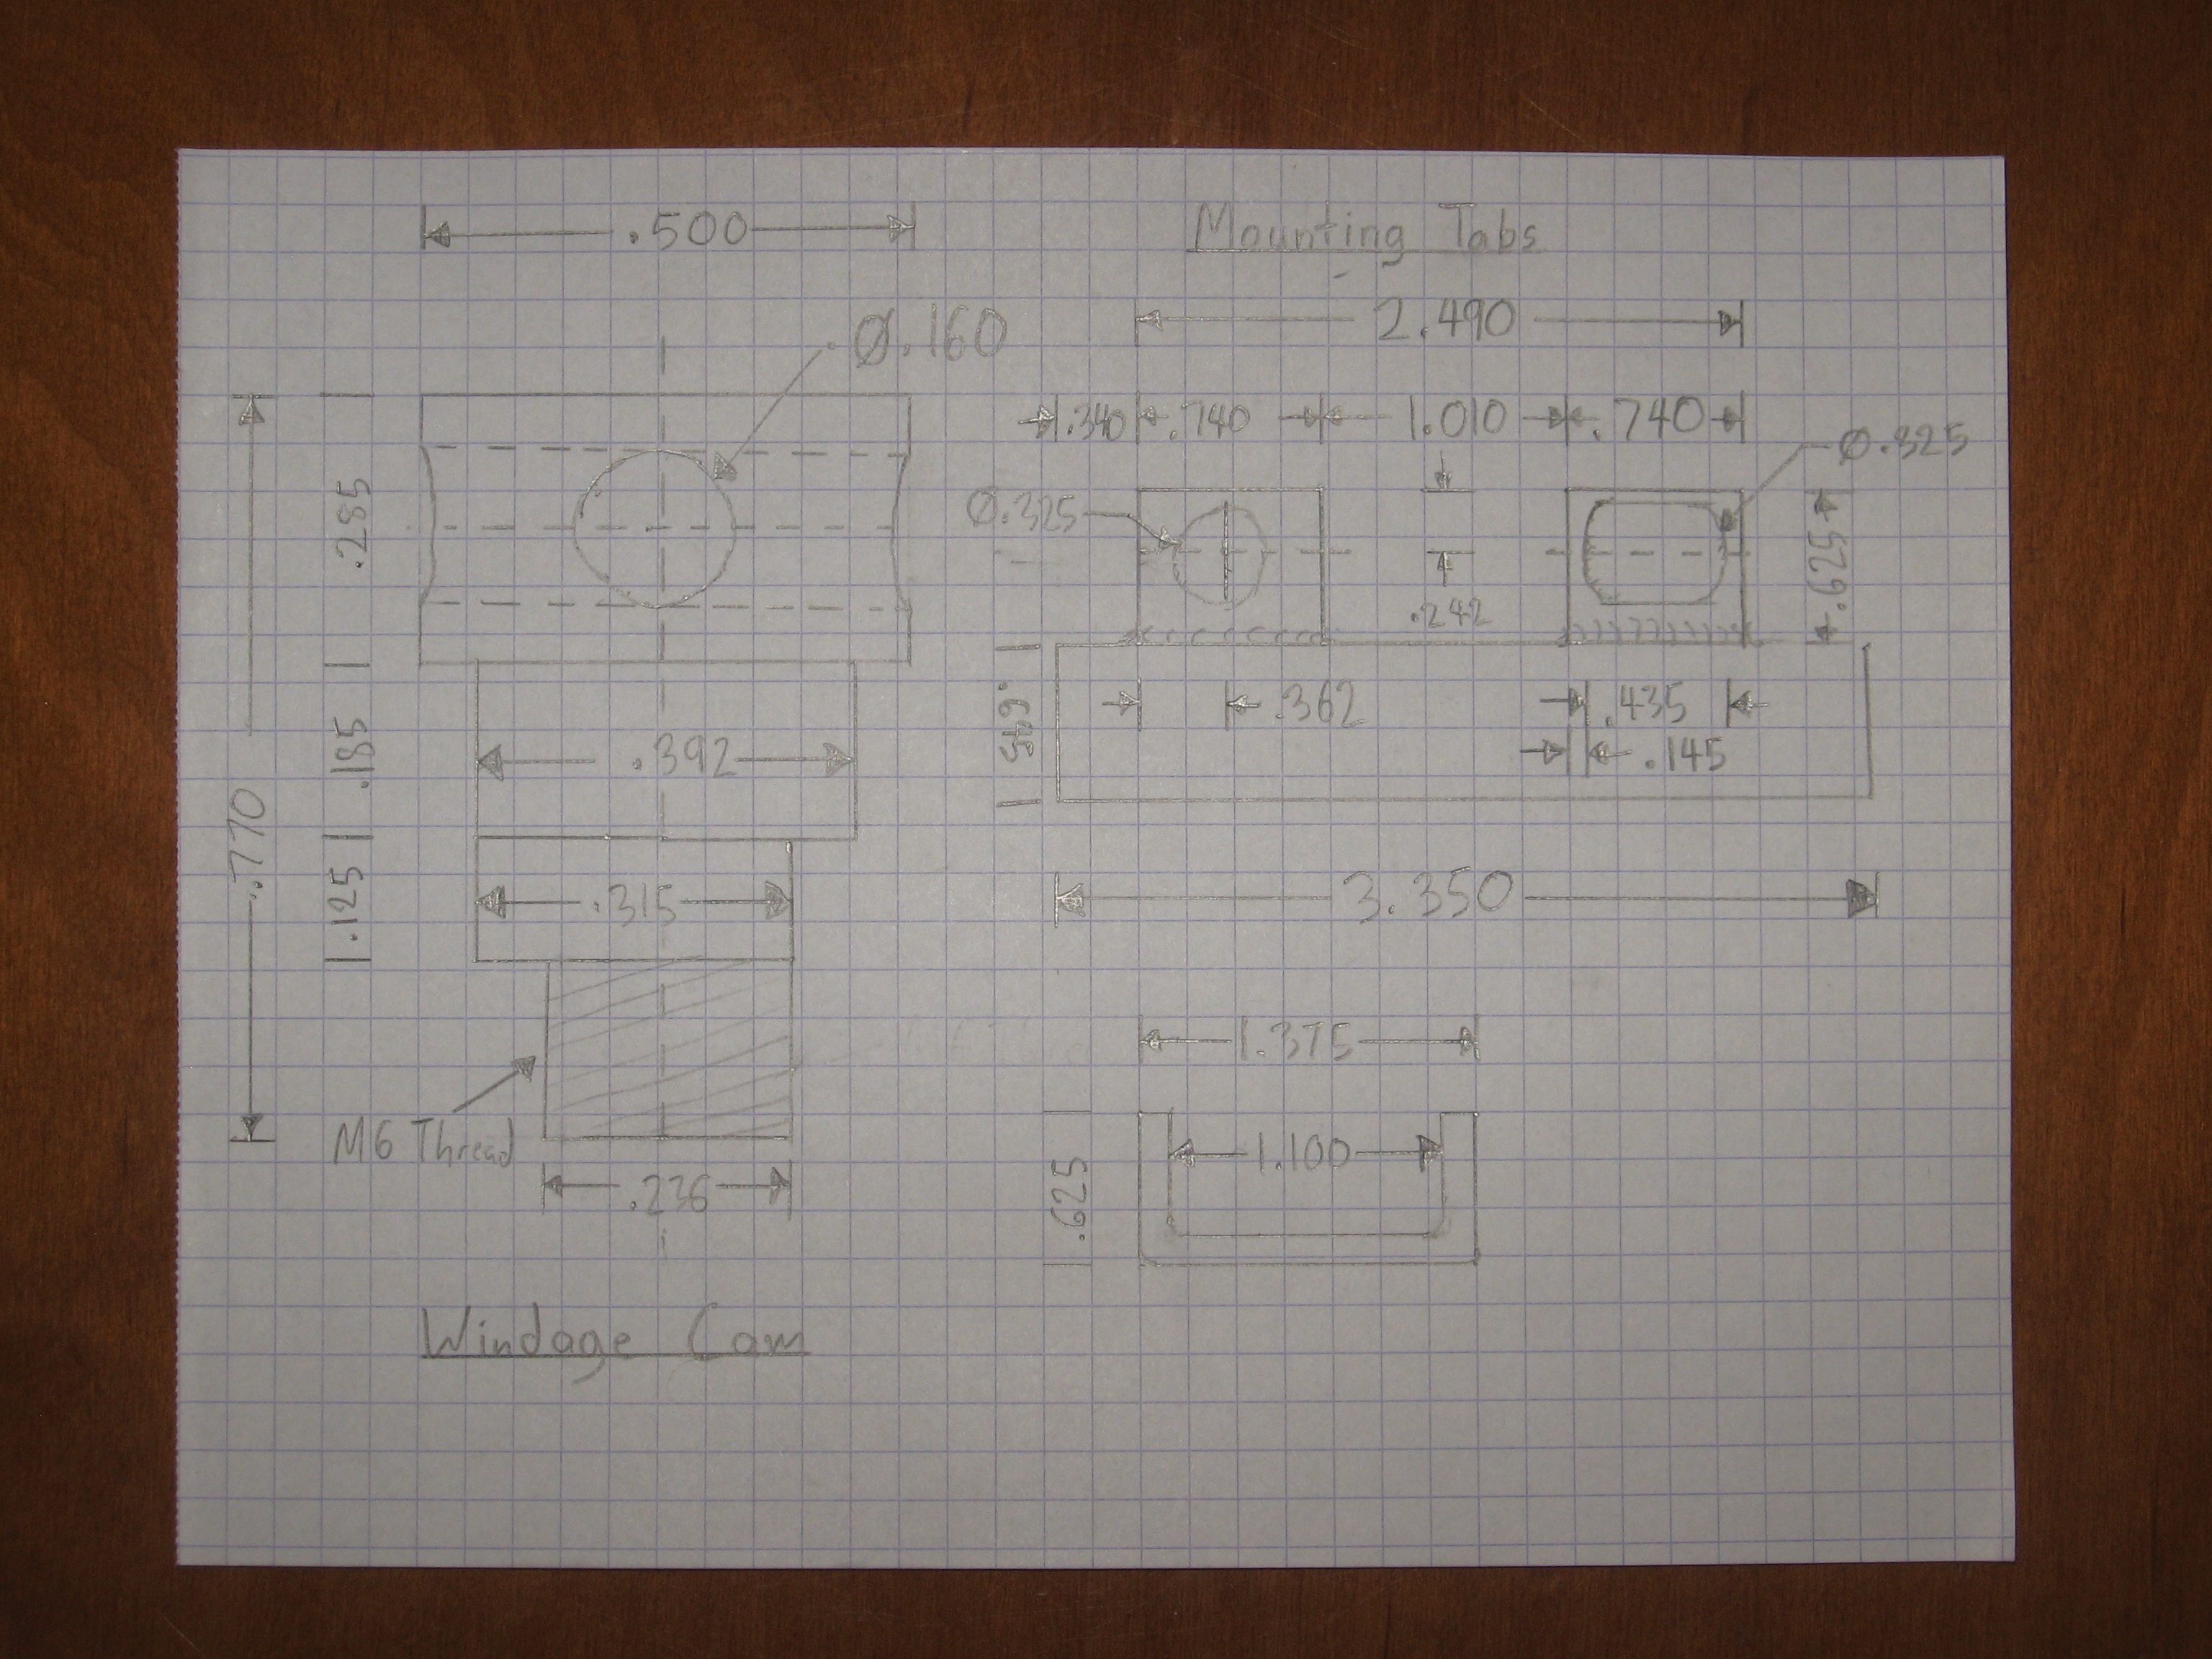 .500
Mounting Tabs
2.490
Ø.160
.340
.740
1.010
.740
Ø.325
Ø.325
.285
.625
.242
.362
.435
.145
.185
.392
.770
3.350
.125
.315
1.375
M6 Thread
1.100
.236
.625
Windage Cam